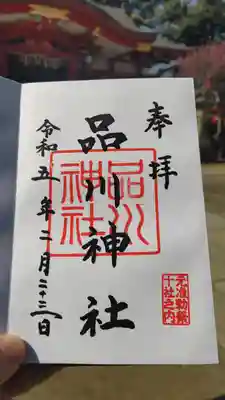 奉拝
品川神社
品川神社
令和五年二月二十三日
元准勅祭
十社之内